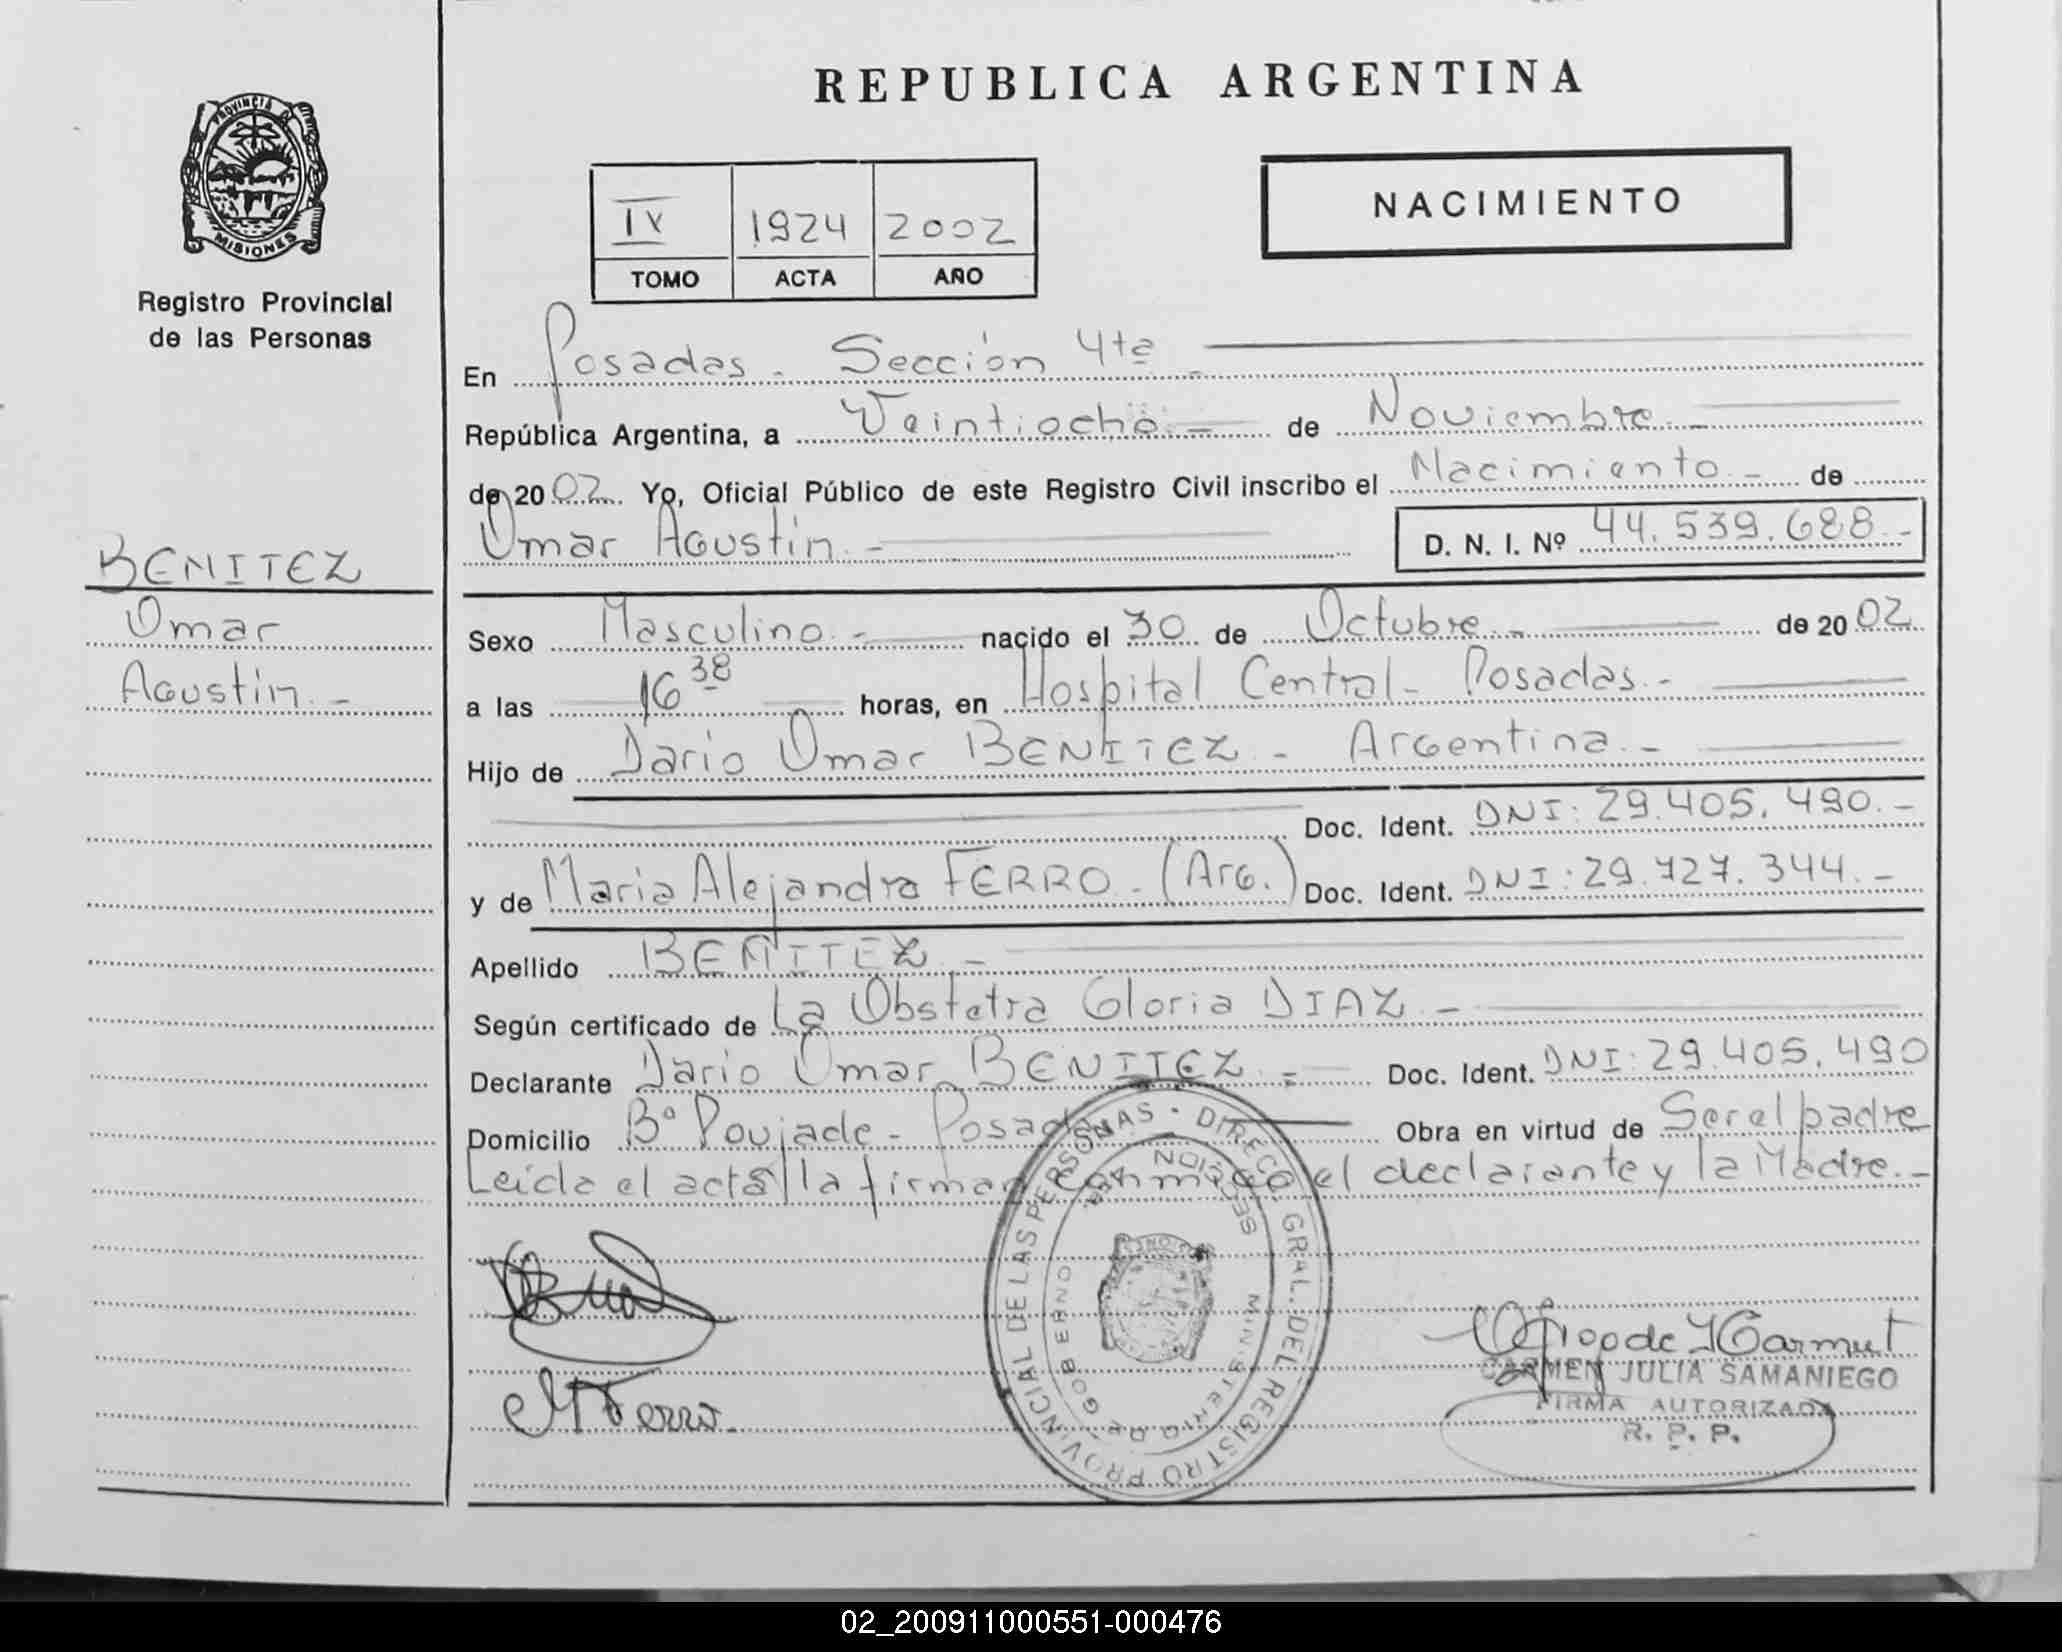 REPUBLICA ARGENTINA
PROVINCIA DE
MISIONES
Registro Provincial
de las Personas
IV 1924 2002
TOMO ACTA AÑO
NACIMIENTO
En Posadas. Sección 4ta
República Argentina, a Veintiocho.- de Noviembre.-
de 2002. Yo, Oficial Público de este Registro Civil inscribo el Nacimiento.- de
Omar Agustin.- D. N. I. Nº 44.539.688.-
BENITEZ
Omar
Agustin.-
Sexo Masculino.- nacido el 30 de Octubre.- de 2002
a las 16 38 horas, en Hospital Central- Posadas.-
Hijo de Dario Omar BENITEZ - Argentina.-
Doc. Ident. DNI: 29.405.490.-
y de Maria Alejandra FERRO. (Arg.) Doc. Ident. DNI: 29.727.344.-
Apellido BENITEZ.-
Según certificado de La Obstetra Gloria DIAZ.-
Declarante Dario Omar BENITEZ.- Doc. Ident. DNI: 29.405.490
Domicilio Bº Poujade- Posadas Obra en virtud de Ser el padre
Leida el acta la firman conmigo el declarante y la Madre.-
DIREC. GRAL. DEL REGISTRO PROVINCIAL DE LAS PERSONAS
MINISTERIO DE GOBIERNO
SECCION 4ta
MFerro.
CARMEN JULIA SAMANIEGO
FIRMA AUTORIZADA
R. P. P.
02_200911000551-000476